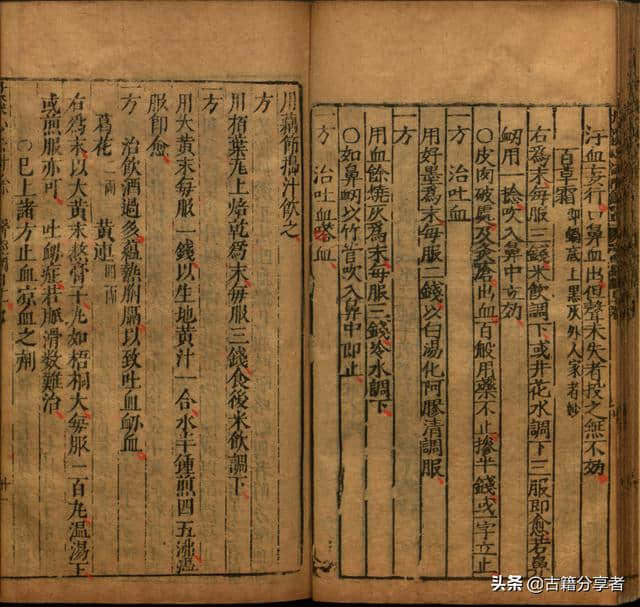 汙血妄行口鼻血出但聲未失者投之無不効
百草霜即鍋底上黑灰外人家者妙
右為末每服三錢米飲調下或井花水調下三服即愈若鼻
衂用一捻吹入鼻中立効
○皮肉破處及灸瘡出血百般用藥不止摻半錢或一字立止
一方 治吐血
用好墨為末每服二錢以白湯化阿膠清調服
一方
用血餘燒灰為末每服三錢冷水調下
○如鼻衂以竹管吹入鼻中即止
一方 治吐血喀血
用藕節搗汁飲之
一方
用栢葉九上焙乾為末每服三錢食後米飲調下
一方
用大黃末每服一錢以生地黃汁一合水半鍾煎四五沸溫
服即愈
一方 治飲酒過多蘊熱胸膈以致吐血衂血
葛花二兩 黃連四兩
右為末以大黃末熬膏子丸如梧桐大每服一百丸溫湯下
或煎服亦可 吐衂症若脈滑數難治
○已上諸方止血涼血之劑
头条 @古籍分享者